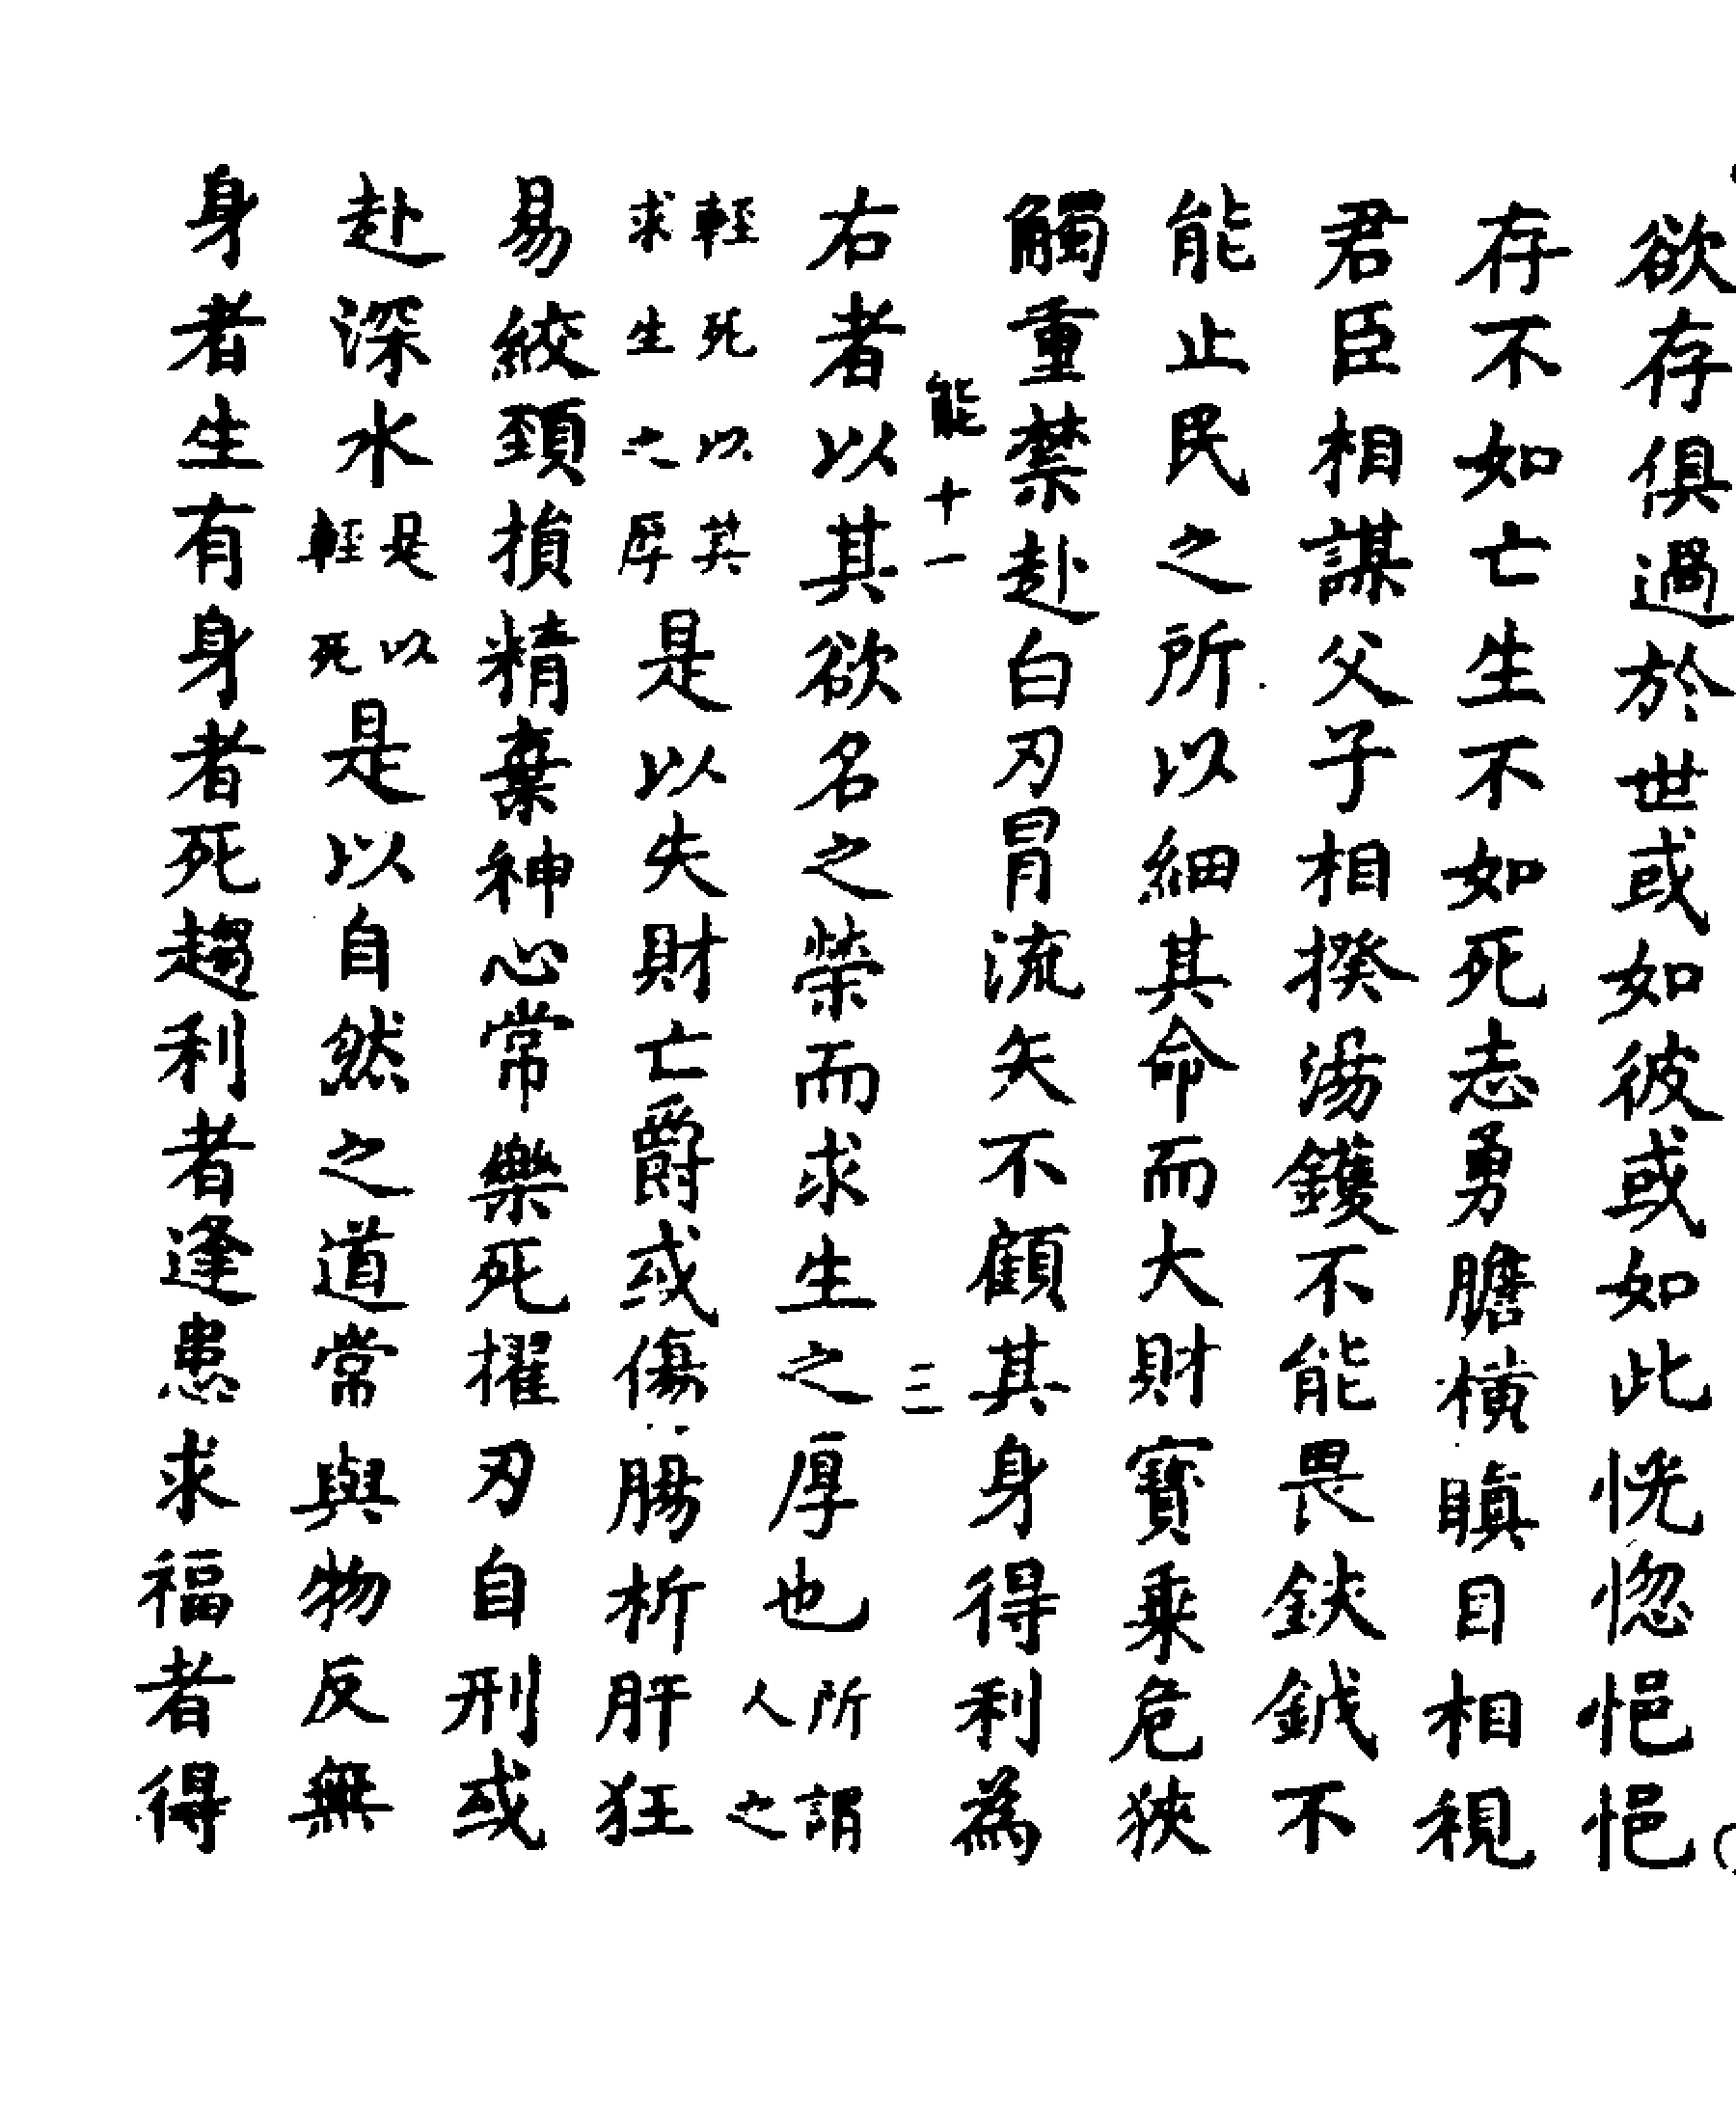 欲存俱過於世或如彼或如此恍惚悒悒
存不如亡生不如死志勇膽橫瞋目相視
君臣相謀父子相揆湯鑊不能畏鈇鉞不
能止民之所以細其命而大財寶乘危狹
觸重禁赴白刃冒流矢不顧其身得利為
能十一 三
右者以其欲名之榮而求生之厚也所謂人之
輕死以其求生之厚是以失財亡爵或傷腸析肝狂
易絞頸損精棄神心常樂死擢刃自刑或
赴深水是以輕死是以自然之道常與物反無
身者生有身者死趨利者逢患求福者得